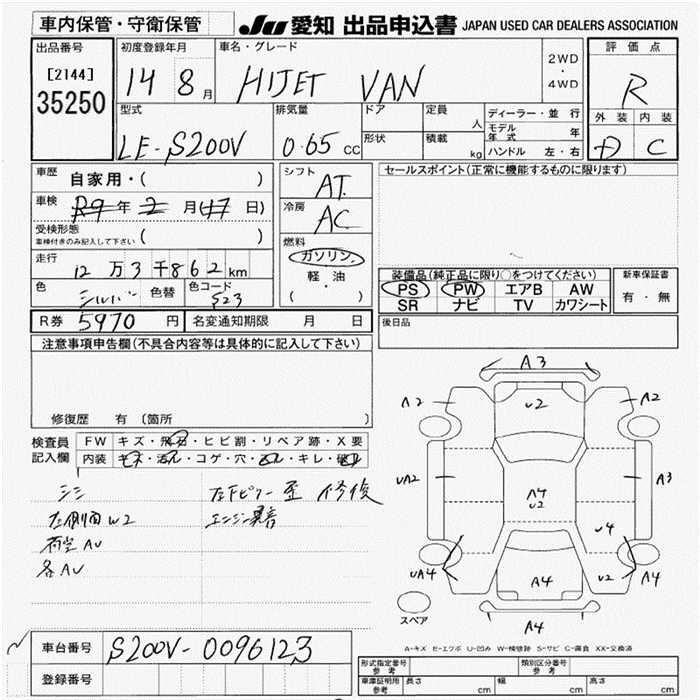 車内保管・守衛保管 JU 愛知 出品申込書 JAPAN USED CAR DEALERS ASSOCIATION
出品番号 初度登録年月 車名・グレード 評価点
[2144] 14 8月 HIJET VAN 2WD・4WD R
35250 型式 排気量 ドア 定員 人 ディーラー・並行 外装 内装
LE-S200V 0.65 CC 形状 積載 kg モデル年式 年 D C
ハンドル 左・右
車歴 自家用・( ) シフト AT セールスポイント(正常に機能するものに限ります)
車検 R9年2月(17日) 冷房 AC
受検形態 車検付きのみ記入して下さい ( ) 燃料
走行 12万3千862km ガソリン 軽・油 ( ・ ) 装備品(純正品に限り○をつけてください) 新車保証書
色 シルバー 色替 色コード S23 PS PW エアB AW 有・無
SR ナビ TV カワシート
R券 5970円 名変通知期限 月 日 後日品
注意事項申告欄(不具合内容等は具体的に記入して下さい)
修復歴 有 〔箇所
検査員 FW キズ・飛石・ヒビ割・リペア跡・X要
記入欄 内装 キズ・汚れ・コゲ・穴・キレ・
シミ 左Fピラー歪 修復
左側面W2 エンジン異音
各AU
A3
A2 U2 A2
UA2 A4 U2 A3
U4
UA4 A4 U2 A4
スペア A4
A-キズ E-エクボ U-凹み W-補修跡 S-サビ C-腐食 XX-交換済
車台番号 S200V-0096123 形式指定番号 参考 類別区分番号 参考
登録番号 車庫証明用 参考 長さ cm 幅 cm 高さ cm